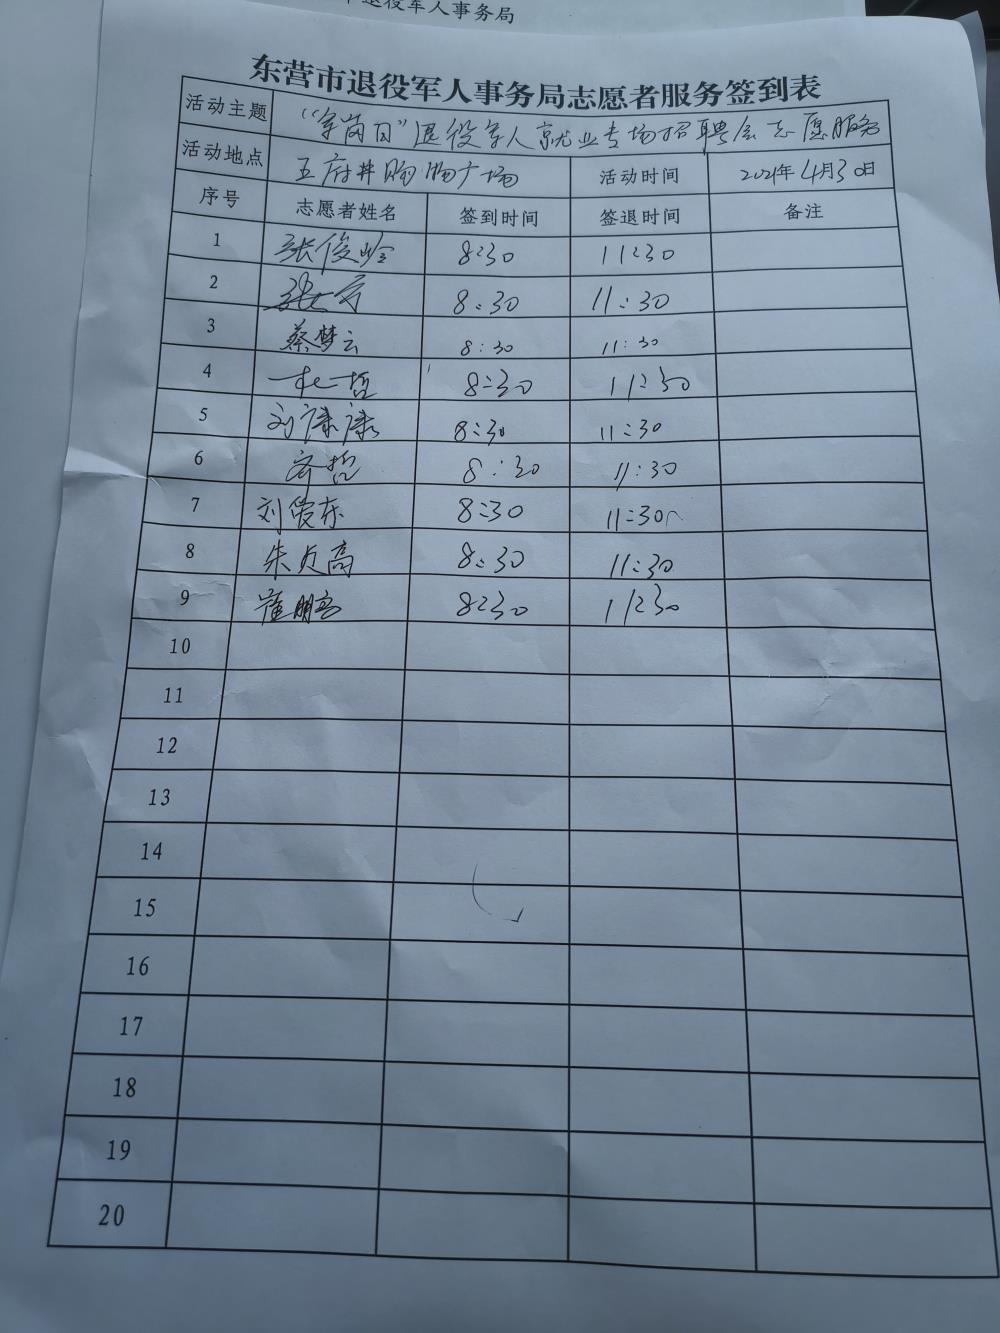 退役军人事务局
东营市退役军人事务局志愿者服务签到表
活动主题 “军岗日”退役军人就业专场招聘会志愿服务
活动地点 五府井购物广场 活动时间 2021年4月30日
序号 志愿者姓名 签到时间 签退时间 备注
1 张俊岭 8:30 11:30
2 8:30 11:30
3 蔡梦云 8:30 11:30
4 杜哲 8:30 11:30
5 刘康康 8:30 11:30
6 齐哲 8:30 11:30
7 刘爱东 8:30 11:30
8 朱贞高 8:30 11:30
9 崔明亮 8:30 11:30
10
11
12
13
14
15
16
17
18
19
20